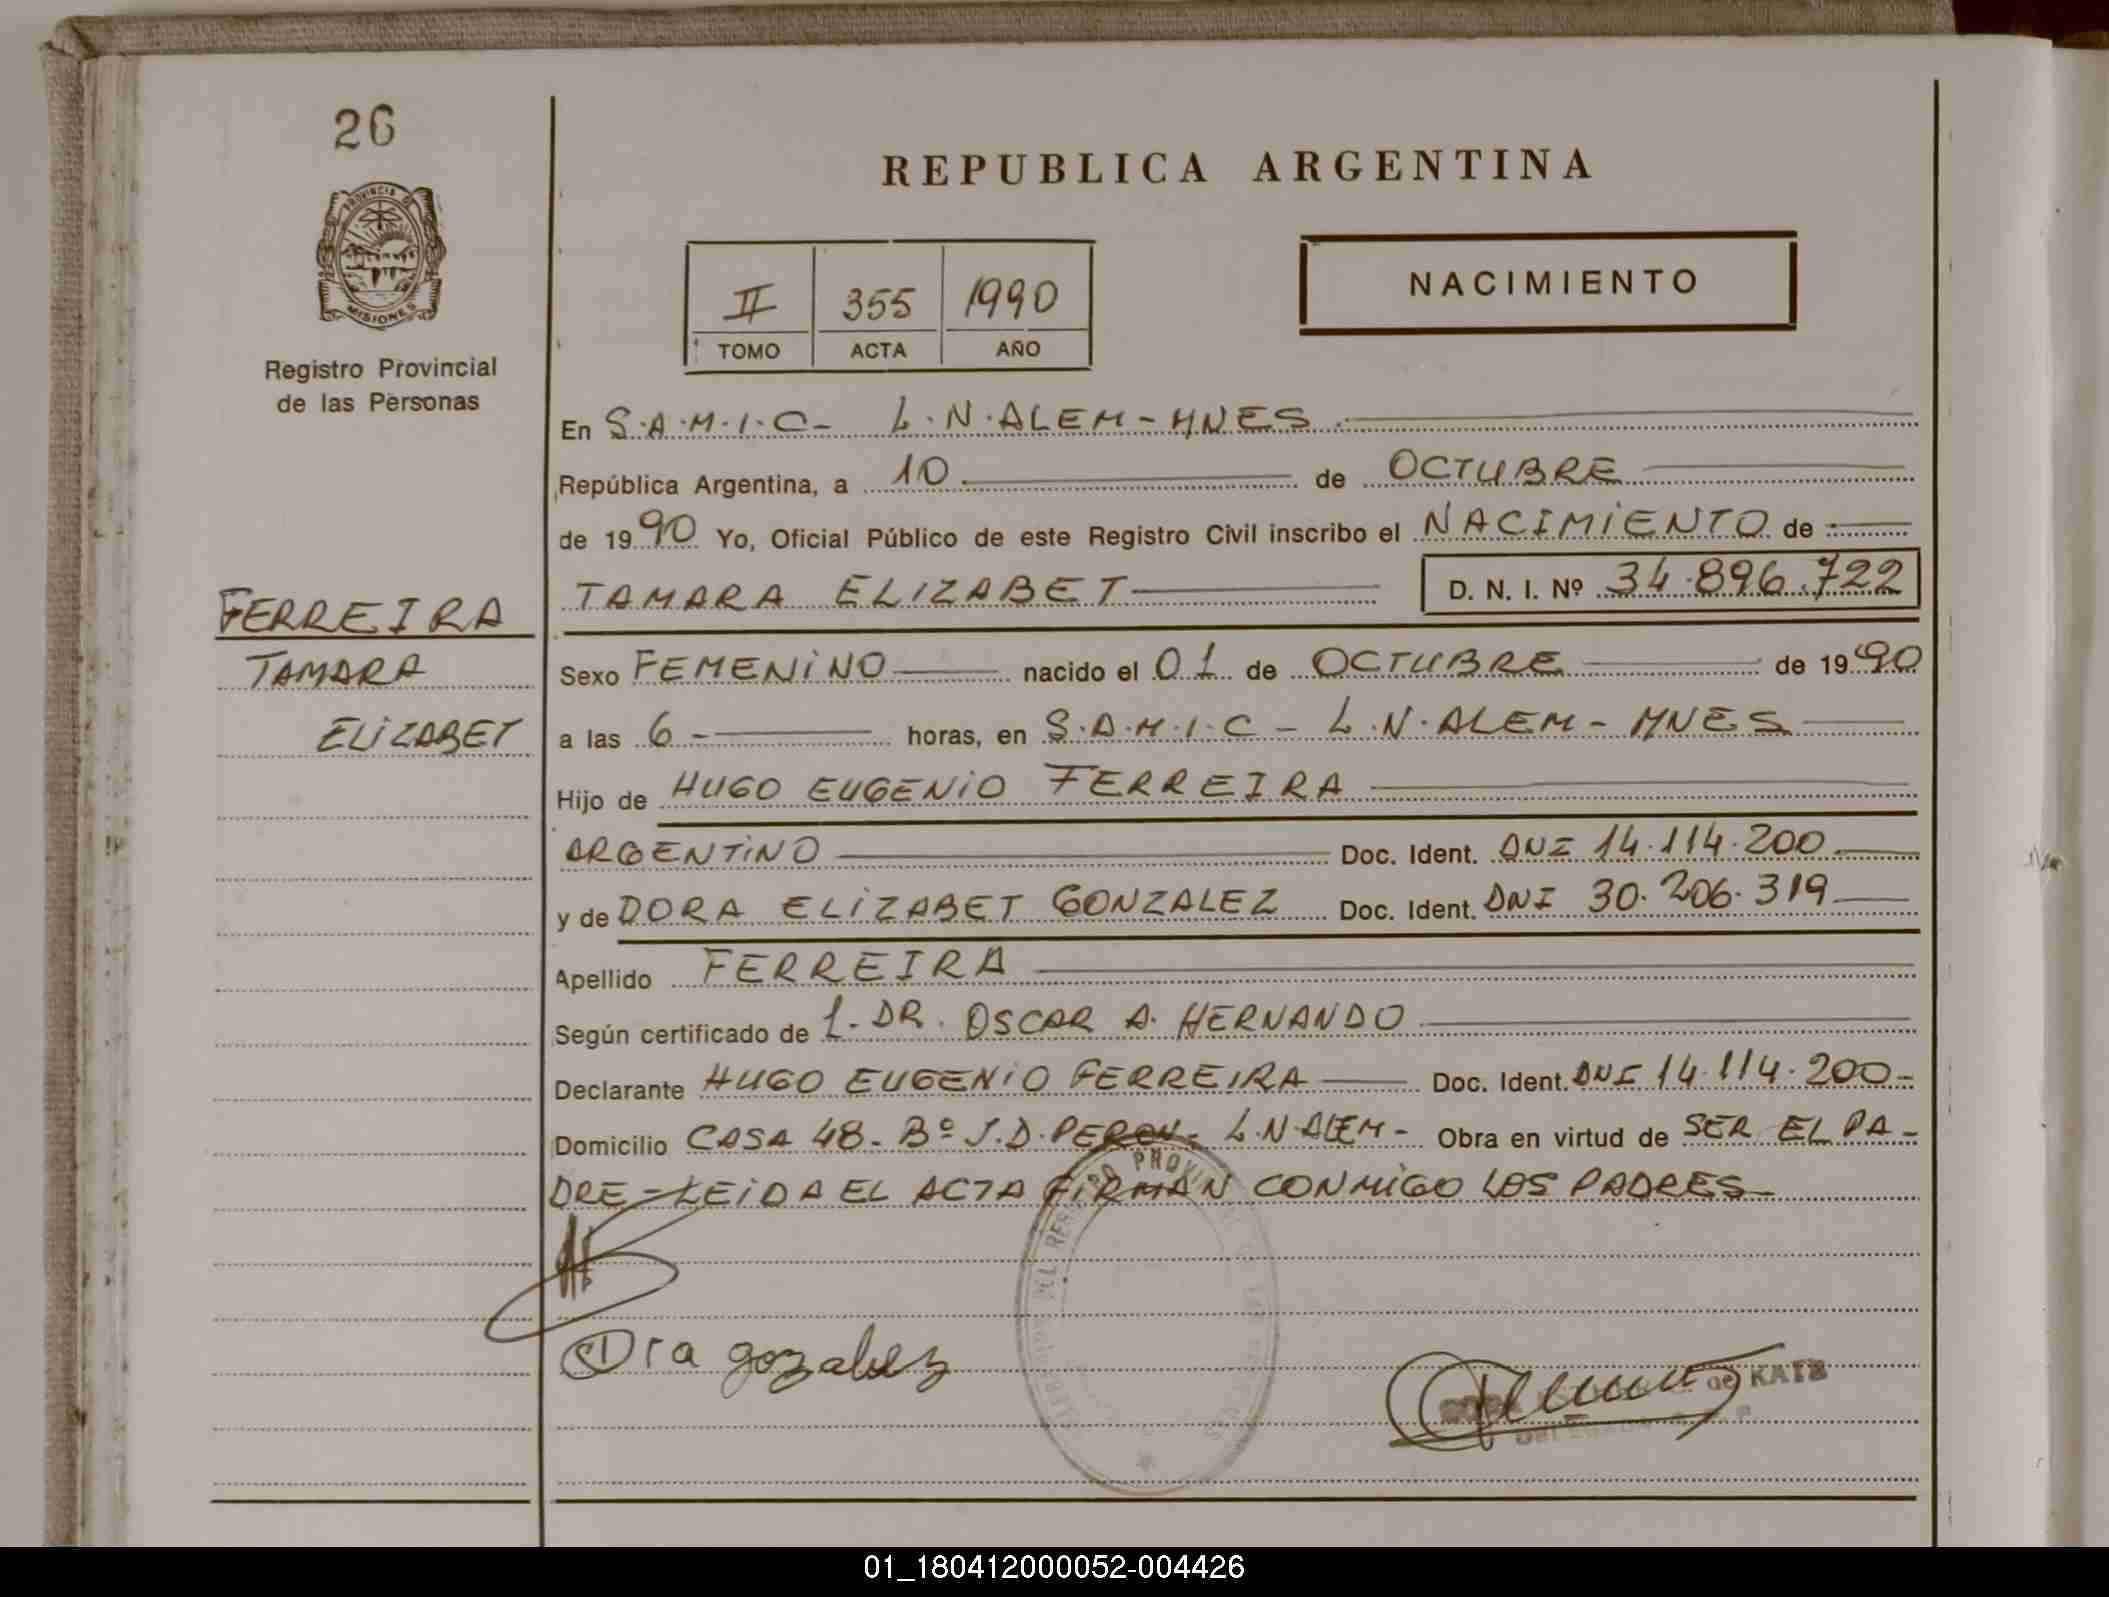 26
PROVINCIA DE
MISIONES
Registro Provincial
de las Personas
FERREIRA
TAMARA
ELIZABET
REPUBLICA ARGENTINA
II 355 1990
TOMO ACTA AÑO
NACIMIENTO
En S.A.M.I.C- L.N.ALEM-MNES
República Argentina, a 10 de OCTUBRE
de 1990 Yo, Oficial Público de este Registro Civil inscribo el NACIMIENTO de
TAMARA ELIZABET D. N. I. Nº 34.896.722
Sexo FEMENINO nacido el 01 de OCTUBRE de 1990
a las 6- horas, en S.A.M.I.C - L.N.ALEM- MNES
Hijo de HUGO EUGENIO FERREIRA
ARGENTINO Doc. Ident. DNI 14.114.200
y de DORA ELIZABET GONZALEZ Doc. Ident. DNI 30.206.319
Apellido FERREIRA
Según certificado de 1. DR. OSCAR A. HERNANDO
Declarante HUGO EUGENIO FERREIRA Doc. Ident. DNI 14.114.200-
Domicilio CASA 48- Bº J.D.PERON- L.N.ALEM- Obra en virtud de SER EL PA-
DRE-LEIDA EL ACTA FIRMAN CONMIGO LOS PADRES-
Dra gozalez
de KATZ
01_180412000052-004426